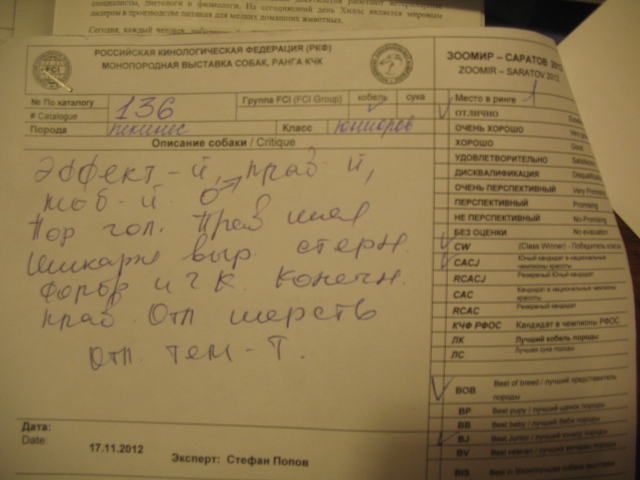 специалисты, диетологи и физиологи. На сегодняшний день Хиллс является мировым
лидером в производстве питания для мелких домашних животных.
Сегодня, каждый человек
РОССИЙСКАЯ КИНОЛОГИЧЕСКАЯ ФЕДЕРАЦИЯ (РКФ)
МОНОПОРОДНАЯ ВЫСТАВКА СОБАК, РАНГА КЧК
FCI
№ По каталогу
# Catalogue
136
Группа FCI (FCI Group)
кобель
сука
Порода
пекинес
Класс
юниоров
Описание собаки / Critique
Эффект-й, прав-й,
Пор гол. Прав шея
Шикарн выр. стерн.
Форбр и ЧК. Конечн.
прав Отл шерсть
отл. тем-т.
Дата:
Date:
17.11.2012
Эксперт: Стефан Попов
ЗООМИР – САРАТОВ 2012
ZOOMIR – SARATOV 2012
Место в ринге 1
ОТЛИЧНО
ОЧЕНЬ ХОРОШО
ХОРОШО Good
УДОВЛЕТВОРИТЕЛЬНО
ДИСКВАЛИФИКАЦИЯ
ОЧЕНЬ ПЕРСПЕКТИВНЫЙ Very Promising
ПЕРСПЕКТИВНЫЙ Promising
НЕ ПЕРСПЕКТИВНЫЙ No-Promising
БЕЗ ОЦЕНКИ No evaluation
CW (Class Winner) - Победитель класса
CACJ Юный кандидат в национальные чемпионы красоты
RCACJ Резервный Юный кандидат
CAC Кандидат в национальные чемпионы красоты
RCAC Резервный кандидат
КЧФ РФОС Кандидат в чемпионы РФОС
ЛК Лучший кобель породы
ЛС Лучшая сука породы
BOB Best of breed / лучший представитель породы
BP Best puppy / лучший щенок породы
BB Best baby / лучший беби породы
BJ Best Junior / лучший юниор породы
BV Best veteran / лучший ветеран породы
BIS